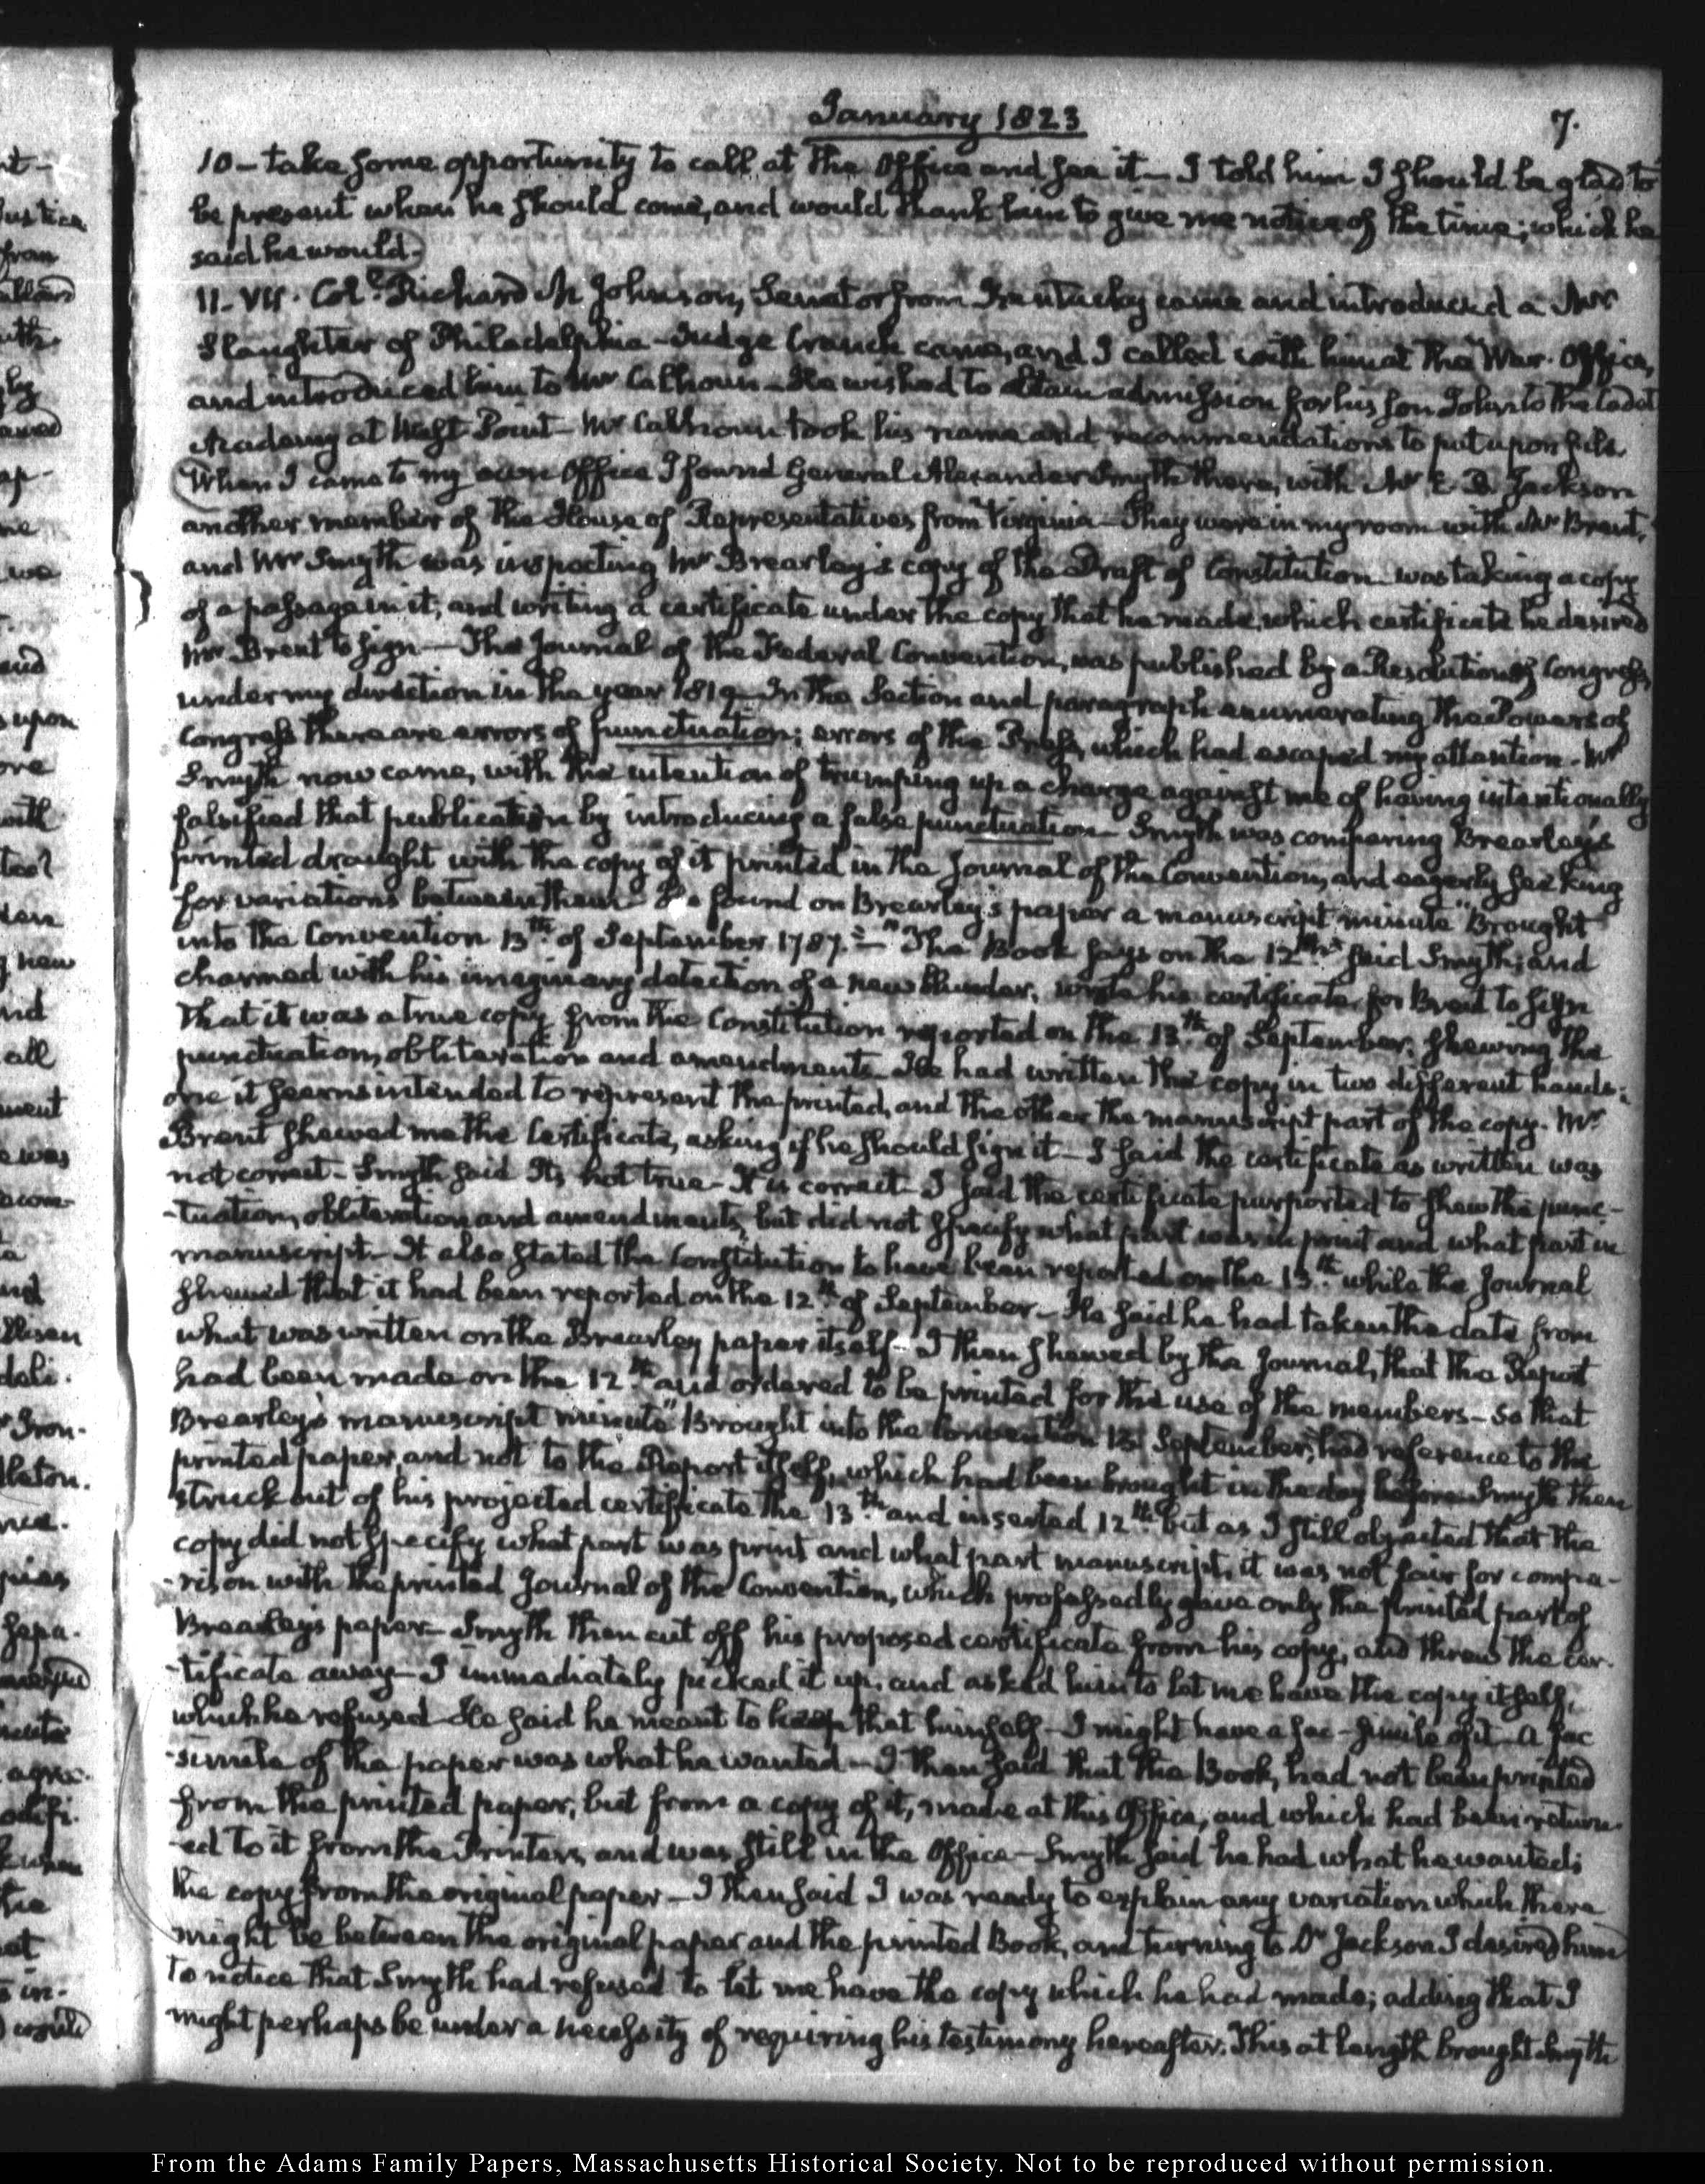 January 1823
7.
10 - take some opportunity to call at the Office and see it - I told him I should be glad to
be present when he should come, and would thank him to give me notice of the time; which he
said he would.
11. VII. Coll. Richard M Johnson, Senator from Kentucky came and introduced a Mr
Slaughter of Philadelphia - Judge Cranch came, and I called with him at the War Office,
and introduced him to Mr Calhoun - He wished to obtain admission for his son John to the Cadet
Academy at West Point - Mr Calhoun took his name and recommendations to put upon file.
When I came to my own Office I found General Alexander Smyth there, with Mr E. B. Jackson
another member of the House of Representatives from Virginia - They were in my room with Mr Brent,
and Mr Smyth was inspecting Mr Brearley's copy of the Draft of Constitution was taking a copy
of a passage in it, and writing a certificate under the copy that he made, which certificate he desired
Mr Brent to sign - The Journal of the Federal Convention, was published by a Resolution of Congress,
under my direction in the year 1819 - In the Section and paragraph enumerating the Powers of
Congress there are errors of punctuation; errors of the Press, which had escaped my attention. Mr
Smyth now came, with the intention of trumping up a charge against me of having intentionally
falsified that publication by introducing a false punctuation - Smyth was comparing Brearley's
printed draught with the copy of it printed in the Journal of the Convention, and eagerly seeking
for variations between them - He found on Brearley's paper a manuscript minute "Brought
into the Convention 13th of September 1787. -" The Book says on the 12th said Smyth; and
charmed with his imaginary detection of a new blunder, wrote his certificate for Brent to sign
that it was a true copy from the Constitution reported on the 13th of September, shewing the
punctuation, obliteration and amendments. He had written the copy in two different hands;
one it seems intended to represent the printed, and the other the manuscript part of the copy. Mr
Brent shewed me the Certificate, asking if he should sign it - I said the certificate as written was
not correct - Smyth said Its not true - It is correct - I said the certificate purported to shew the punc-
-tuation, obliteration and amendments, but did not specify what part was in print and what part in
manuscript. It also stated the Constitution to have been reported on the 13th while the Journal
shewed that it had been reported on the 12th of September - He said he had taken the date from
what was written on the Brearley paper itself - I then shewed by the Journal, that the Report
had been made on the 12th and ordered to be printed for the use of the members - so that
Brearley's manuscript minute "Brought into the Convention 13 September," had reference to the
printed paper, and not to the Report itself, which had been brought in the day before. Smyth then
struck out of his projected certificate the 13th and inserted 12th but as I still objected that the
copy did not specify what part was print and what part manuscript, it was not fair for compa-
-rison with the printed Journal of the Convention, which professedly gave only the printed part of
Brearley's paper - Smyth then cut off his proposed certificate from his copy, and threw the cer-
-tificate away - I immediately picked it up, and asked him to let me have the copy itself,
which he refused - He said he meant to keep that himself - I might have a fac-simile of it - A fac
-simile of the paper was what he wanted - I then said that the Book, had not been printed
from the printed paper, but from a copy of it, made at this Office, and which had been return-
-ed to it from the Printers, and was still in the Office - Smyth said he had what he wanted;
the copy from the original paper - I then said I was ready to explain any variation which there
might be between the original paper and the printed Book, and turning to Dr Jackson I desired him
to notice that Smyth had refused to let me have the copy which he had made; adding that I
might perhaps be under a necessity of requiring his testimony hereafter. This at length brought Smyth
From the Adams Family Papers, Massachusetts Historical Society. Not to be reproduced without permission.